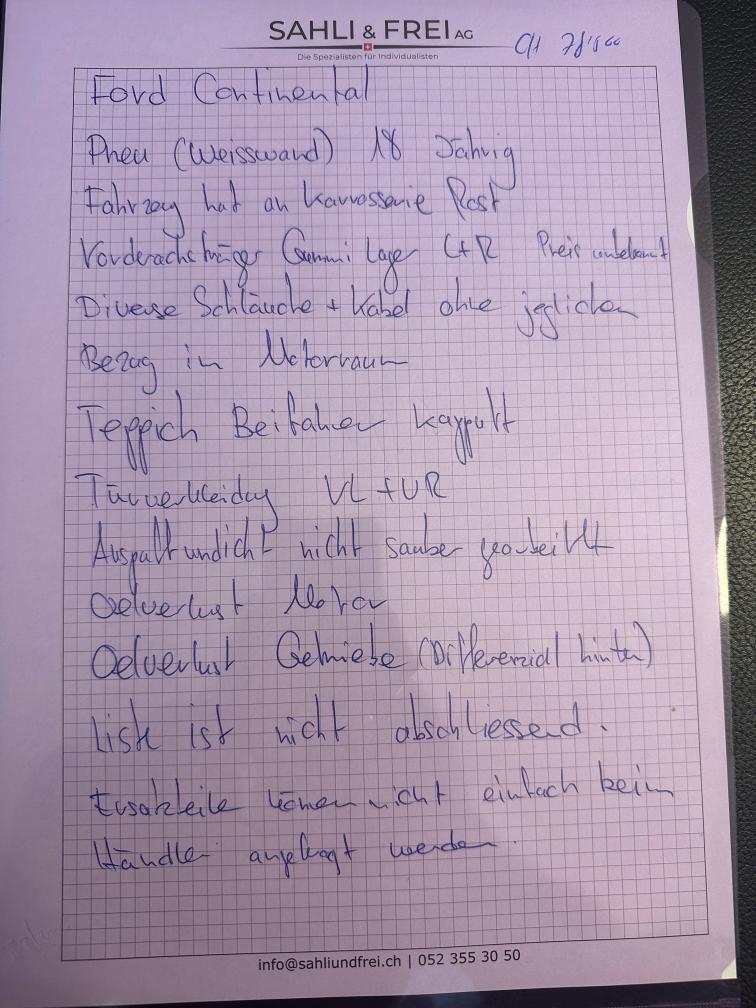 SAHLI & FREI AG
Die Spezialisten für Individualisten
Ford Continental
Pneu (Weisswand) 18 Jährig
Fahrzeug hat an Karrosserie Rost
Vorderachsträger Gummi Lager L+R Preis unbekannt
Diverse Schläuche + Kabel ohne jeglichen
Bezug in Motorraum
Teppich Beifahrer kapputt
Türverkleidung VL + VR
Auspuff undicht nicht sauber gearbeitet
Oelverlust Motor
Oelverlust Getriebe (Differenzial hinten)
Liste ist nicht abschliessend.
Ersatzteile können nicht einfach beim
Händler angefragt werden.
info@sahliundfrei.ch | 052 355 30 50